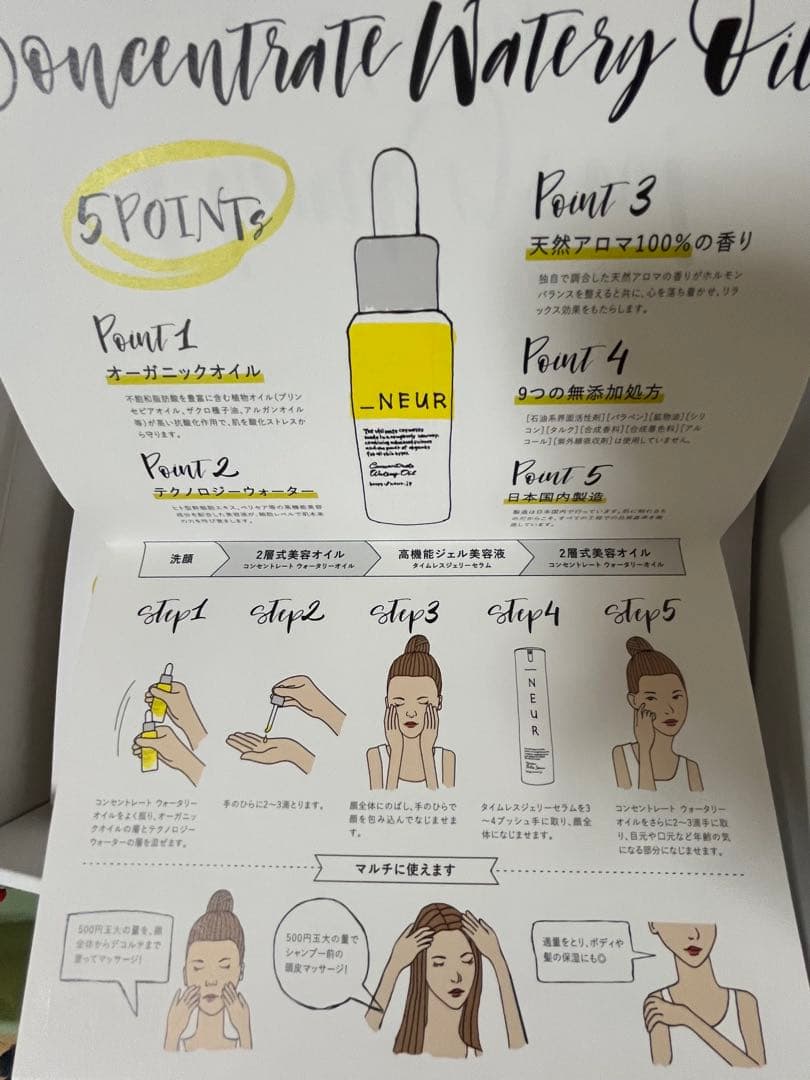 Concentrate Watery Oil
5 POINTs
Point 1
オーガニックオイル
不飽和脂肪酸を豊富に含む植物オイル(プリン
セピアオイル、ザクロ種子油、アルガンオイル
等)が高い抗酸化作用で、肌を酸化ストレスか
ら守ります。
Point 2
テクノロジーウォーター
Point 3
天然アロマ100%の香り
独自で調合した天然アロマの香りがホルモン
バランスを整えると共に、心を落ち着かせ、リラ
ックス効果をもたらします。
Point 4
9つの無添加処方
[石油系界面活性剤][パラベン][鉱物油][シリ
コン][タルク][合成香料][合成着色料][アル
コール][紫外線吸収剤]は使用していません。
Point 5
日本国内製造
_NEUR
Concentrate
Watery Oil
洗顔
2層式美容オイル
コンセントレート ウォータリーオイル
高機能ジェル美容液
タイムレスジェリーセラム
2層式美容オイル
コンセントレート ウォータリーオイル
Step1
Step2
Step3
Step4
Step5
_NEUR
コンセントレート ウォータリー
オイルをよく振り、オーガニッ
クオイルの層とテクノロジー
ウォーターの層を混ぜます。
手のひらに2〜3滴とります。
顔全体にのばし、手のひらで
顔を包み込んでなじませま
す。
タイムレスジェリーセラムを3
〜4プッシュ手に取り、顔全
体になじませます。
コンセントレート ウォータリー
オイルをさらに2〜3滴手に取
り、目元や口元など年齢の気
になる部分になじませます。
マルチに使えます
500円玉大の量を、顔
全体からデコルテまで
塗ってマッサージ!
500円玉大の量で
シャンプー前の
頭皮マッサージ!
適量をとり、ボディや
髪の保湿にも◎